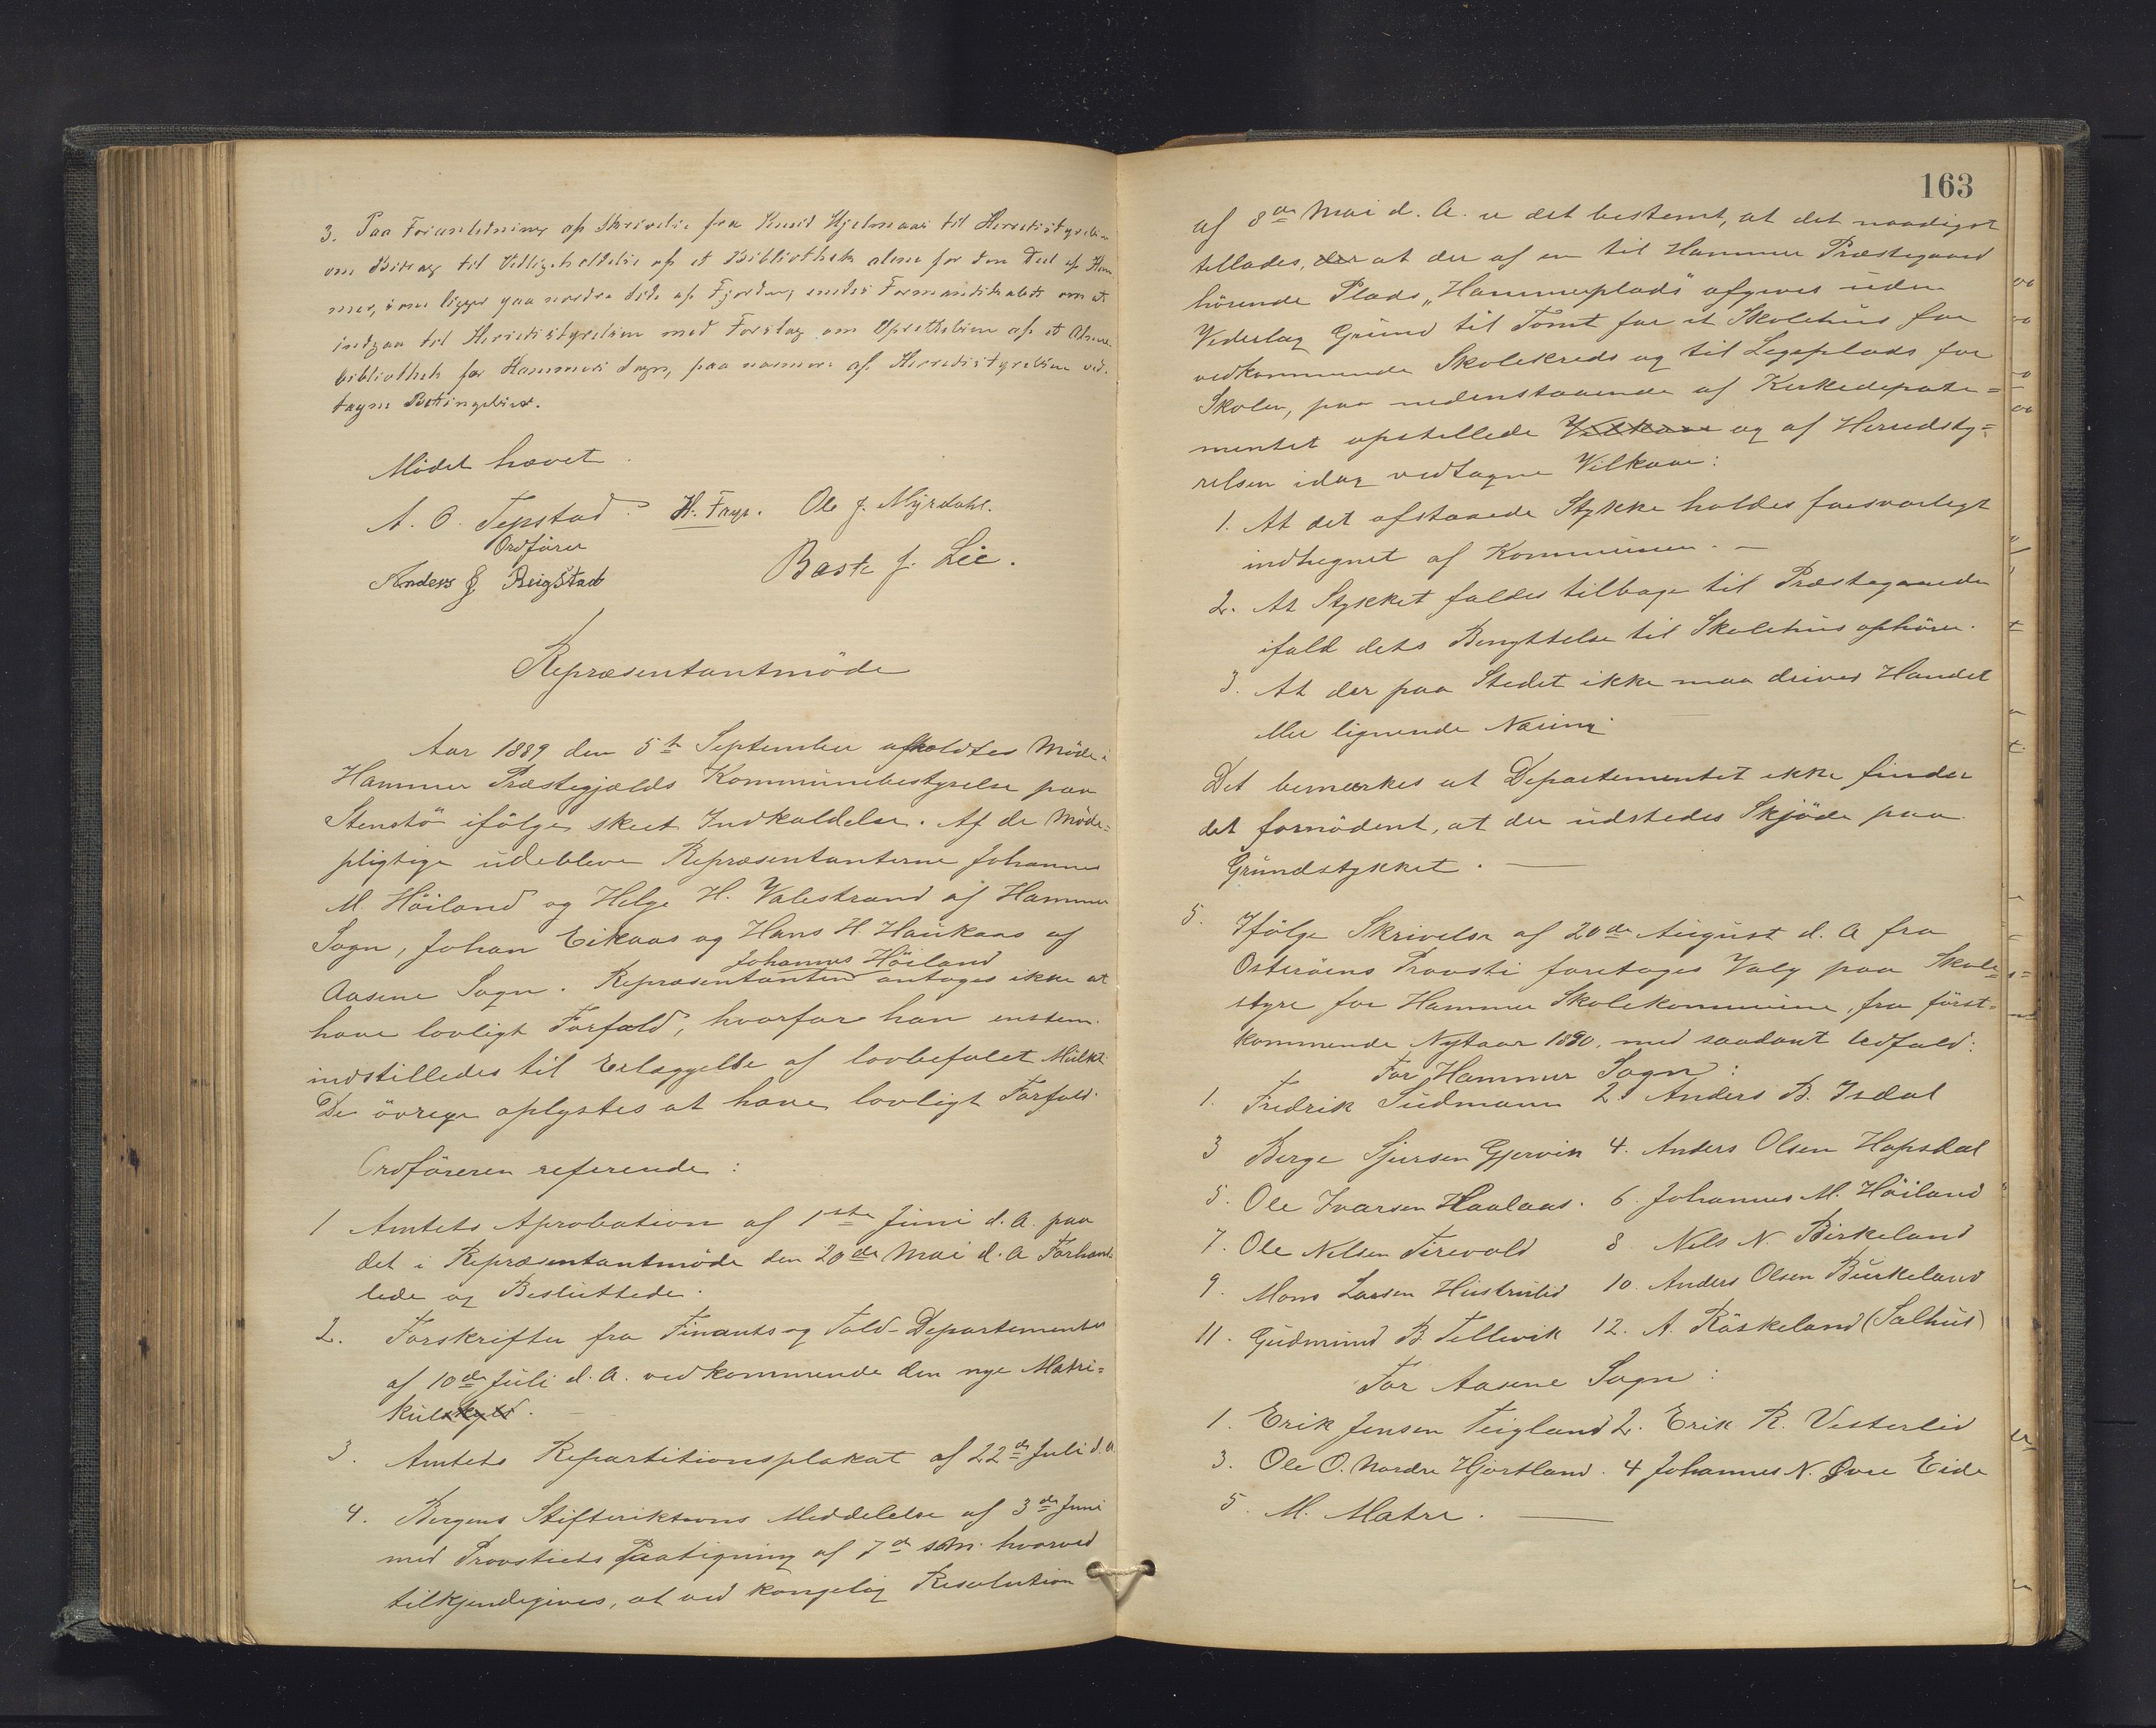 3. Paa Foranledning af Skrivelse fra Knud Hjelmaas til Herredsstyrelsen
om Bidrag til Vedligeholdelse af et Bibliothek alene for den Deel af Ham
mer, som ligger paa nordre Side af Fjorden, enedes Formandskabet om at
indgaa til Herredsstyrelsen med Forslag om Oprettelsen af et Almue
bibliothek for Hammers Sogn, paa nærmere af Herredsstyrelsen ved-
tagne Betingelser.
Mödet hævet.
A. O. Tepstad H. Frys. Ole J. Myrdahl.
Ordförer
Anders J Reigstad Baste J. Lie.
Repræsentantmöde
Aar 1889 den 5te September afholdtes Möde i
Hammer Præstegjælds Kommunebestyrelse paa
Stenstö ifölge skeet Indkaldelse. Af de Möde=
pligtige udebleve Repræsentanterne Johannes
M. Höiland og Helge H. Valestrand af Hammer
Sogn, Johan Eikaas og Hans H. Haukaas af
Johannes Höiland
Aasene Sogn. Repræsentanten antages ikke at
have lovligt Forfald, hvorfor han enstem.
indstilledes til Erlæggelse af lovbefalet Mulkt.
De övrige oplystes at have lovligt Forfald.
Ordföreren refererede:
1 Amtets Aprobation af 1ste Juni d. A. paa
det i Repræsentantmöde den 20de Mai d. A Forhand-
lede og Besluttede.
2. Forskrifter fra Finants og Told-Departementet
af 10de Juli d. A. vedkommende den nye Matri=
kulskyld.
3. Amtets Repartitionsplakat af 22de Juli d. A
4. Bergens Stiftsriktions Meddelelse af 3de Juni
med Provstiets Paategning af 7de s.M. hvorved
tilkjendegives, at ved kongelig Resolution
163
af 8de Mai d. A. er det bestemt, at det naadigst
tillades, der at der af en til Hammer Præstegaard
hörende Plads "Hammerplads" afgives uden
Vederlag Grund til Tomt for et Skolehus for
vedkommende Skolekreds og til Legeplads for
Skolen, paa nedenstaaende af Kirkedeparte=
mentet opstillede Vilkaar og af Herredsty=
relsen idag vedtagne Vilkaar:
1. At det afstaaede Stykke holdes forsvarligt
indhegnet af Kommunen. —
2. At Stykket falder tilbage til Præstegaarden
ifald dets Benyttelse til Skolehus ophörer.
3. At der paa Stedet ikke maa drives Handel
eller lignende Næring
Det bemærkes at Departementet ikke finder
det fornödent, at der udstedes Skjöde paa
Grundstykket. —
5. Ifölge Skrivelse af 20de August d. A fra
Osteröens Provsti foretages Valg paa Skole=
styre for Hammer Skolekommune, fra först=
kommende Nytaar 1890, med saadant Udfald:
For Hammer Sogn:
1. Fredrik Sudmann 2. Anders B. Isdal
3 Berge Sjursen Gjervik 4. Anders Olsen Hopsdal
5. Ole Ivarsen Haalaas. 6. Johannes M. Höiland
7. Ole Nilsen Tirevold 8. Nils N Birkeland
9. Mons Larsen Hustrulid 10. Anders Olsen Burkeland
11. Gudmund B. Tellevik 12. A. Röskeland (Salhus)
For Aasene Sogn:
1. Erik Jensen Teigland 2. Erik R. Vesterlid
3. Ole O. Nordre Hjortland. 4 Johannes N. Övre Eide
5. M. Matre. —